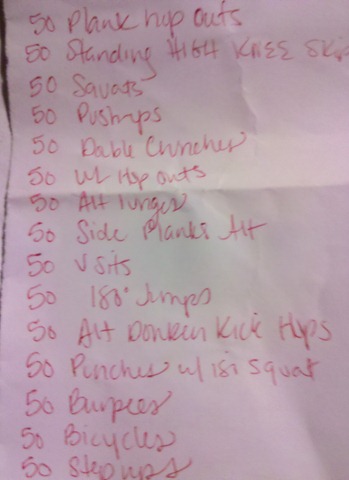 50 Plank hop outs
50 Standing HIGH KNEE Ski
50 Squats
50 Pushups
50 Dable Crunches
50 w/ Hop outs
50 Alt lunges
50 Side Planks Alt
50 V Sits
50 180° Jumps
50 Alt Donkey Kick Hops
50 Punches w/ squat
50 Burpees
50 Bicycles
50 Step ups